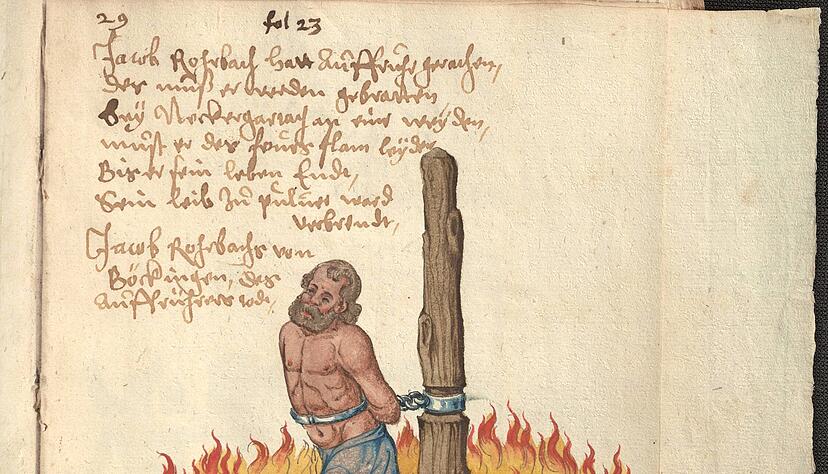 29 fol 23
Jacob Rohrbach hatt Auffruhr gerathen,
des muß er werden gebratten
bey Neckergartach an eine weyden,
must er des feurs flam leyden
Bis er sein leben Endt,
Sein leib zu puluer ward
verbrendt,
Jacob Rohrbachs von
Böckingen, des
Auffrührers todt,